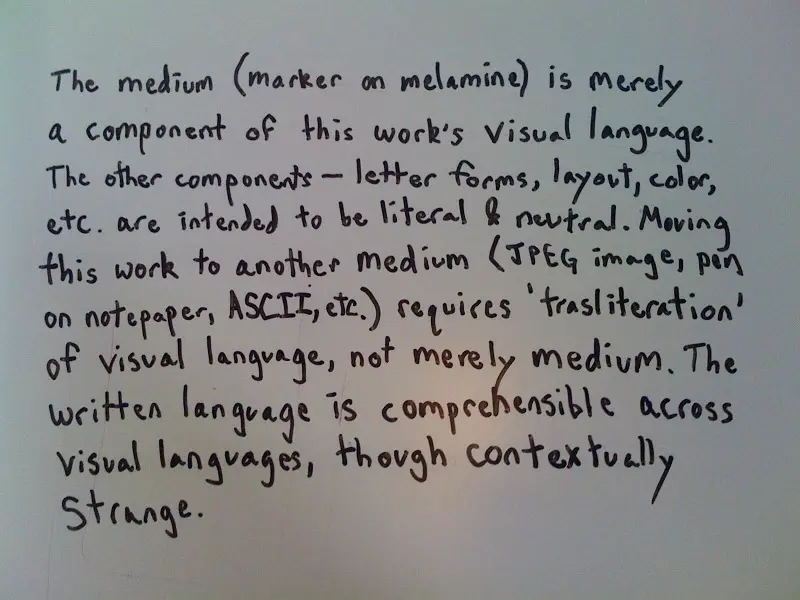 The medium (marker on melamine) is merely
a component of this work's visual language.
The other components – letter forms, layout, color,
etc. are intended to be literal & neutral. Moving
this work to another medium (JPEG image, pen
on notepaper, ASCII, etc.) requires 'trasliteration'
of visual language, not merely medium. The
written language is comprehensible across
visual languages, though contextually
strange.